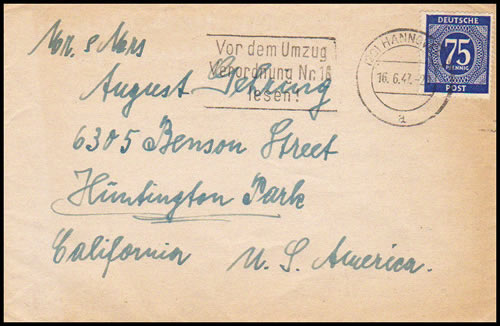 Mr. & Mrs
August Gehring
6305 Benson Street
Huntington Park
California U. S. America.
Vor dem Umzug
Verordnung Nr. 16
lesen!
HANNOV
16. 6. 47.
a
DEUTSCHE
75
PFENNIG
POST